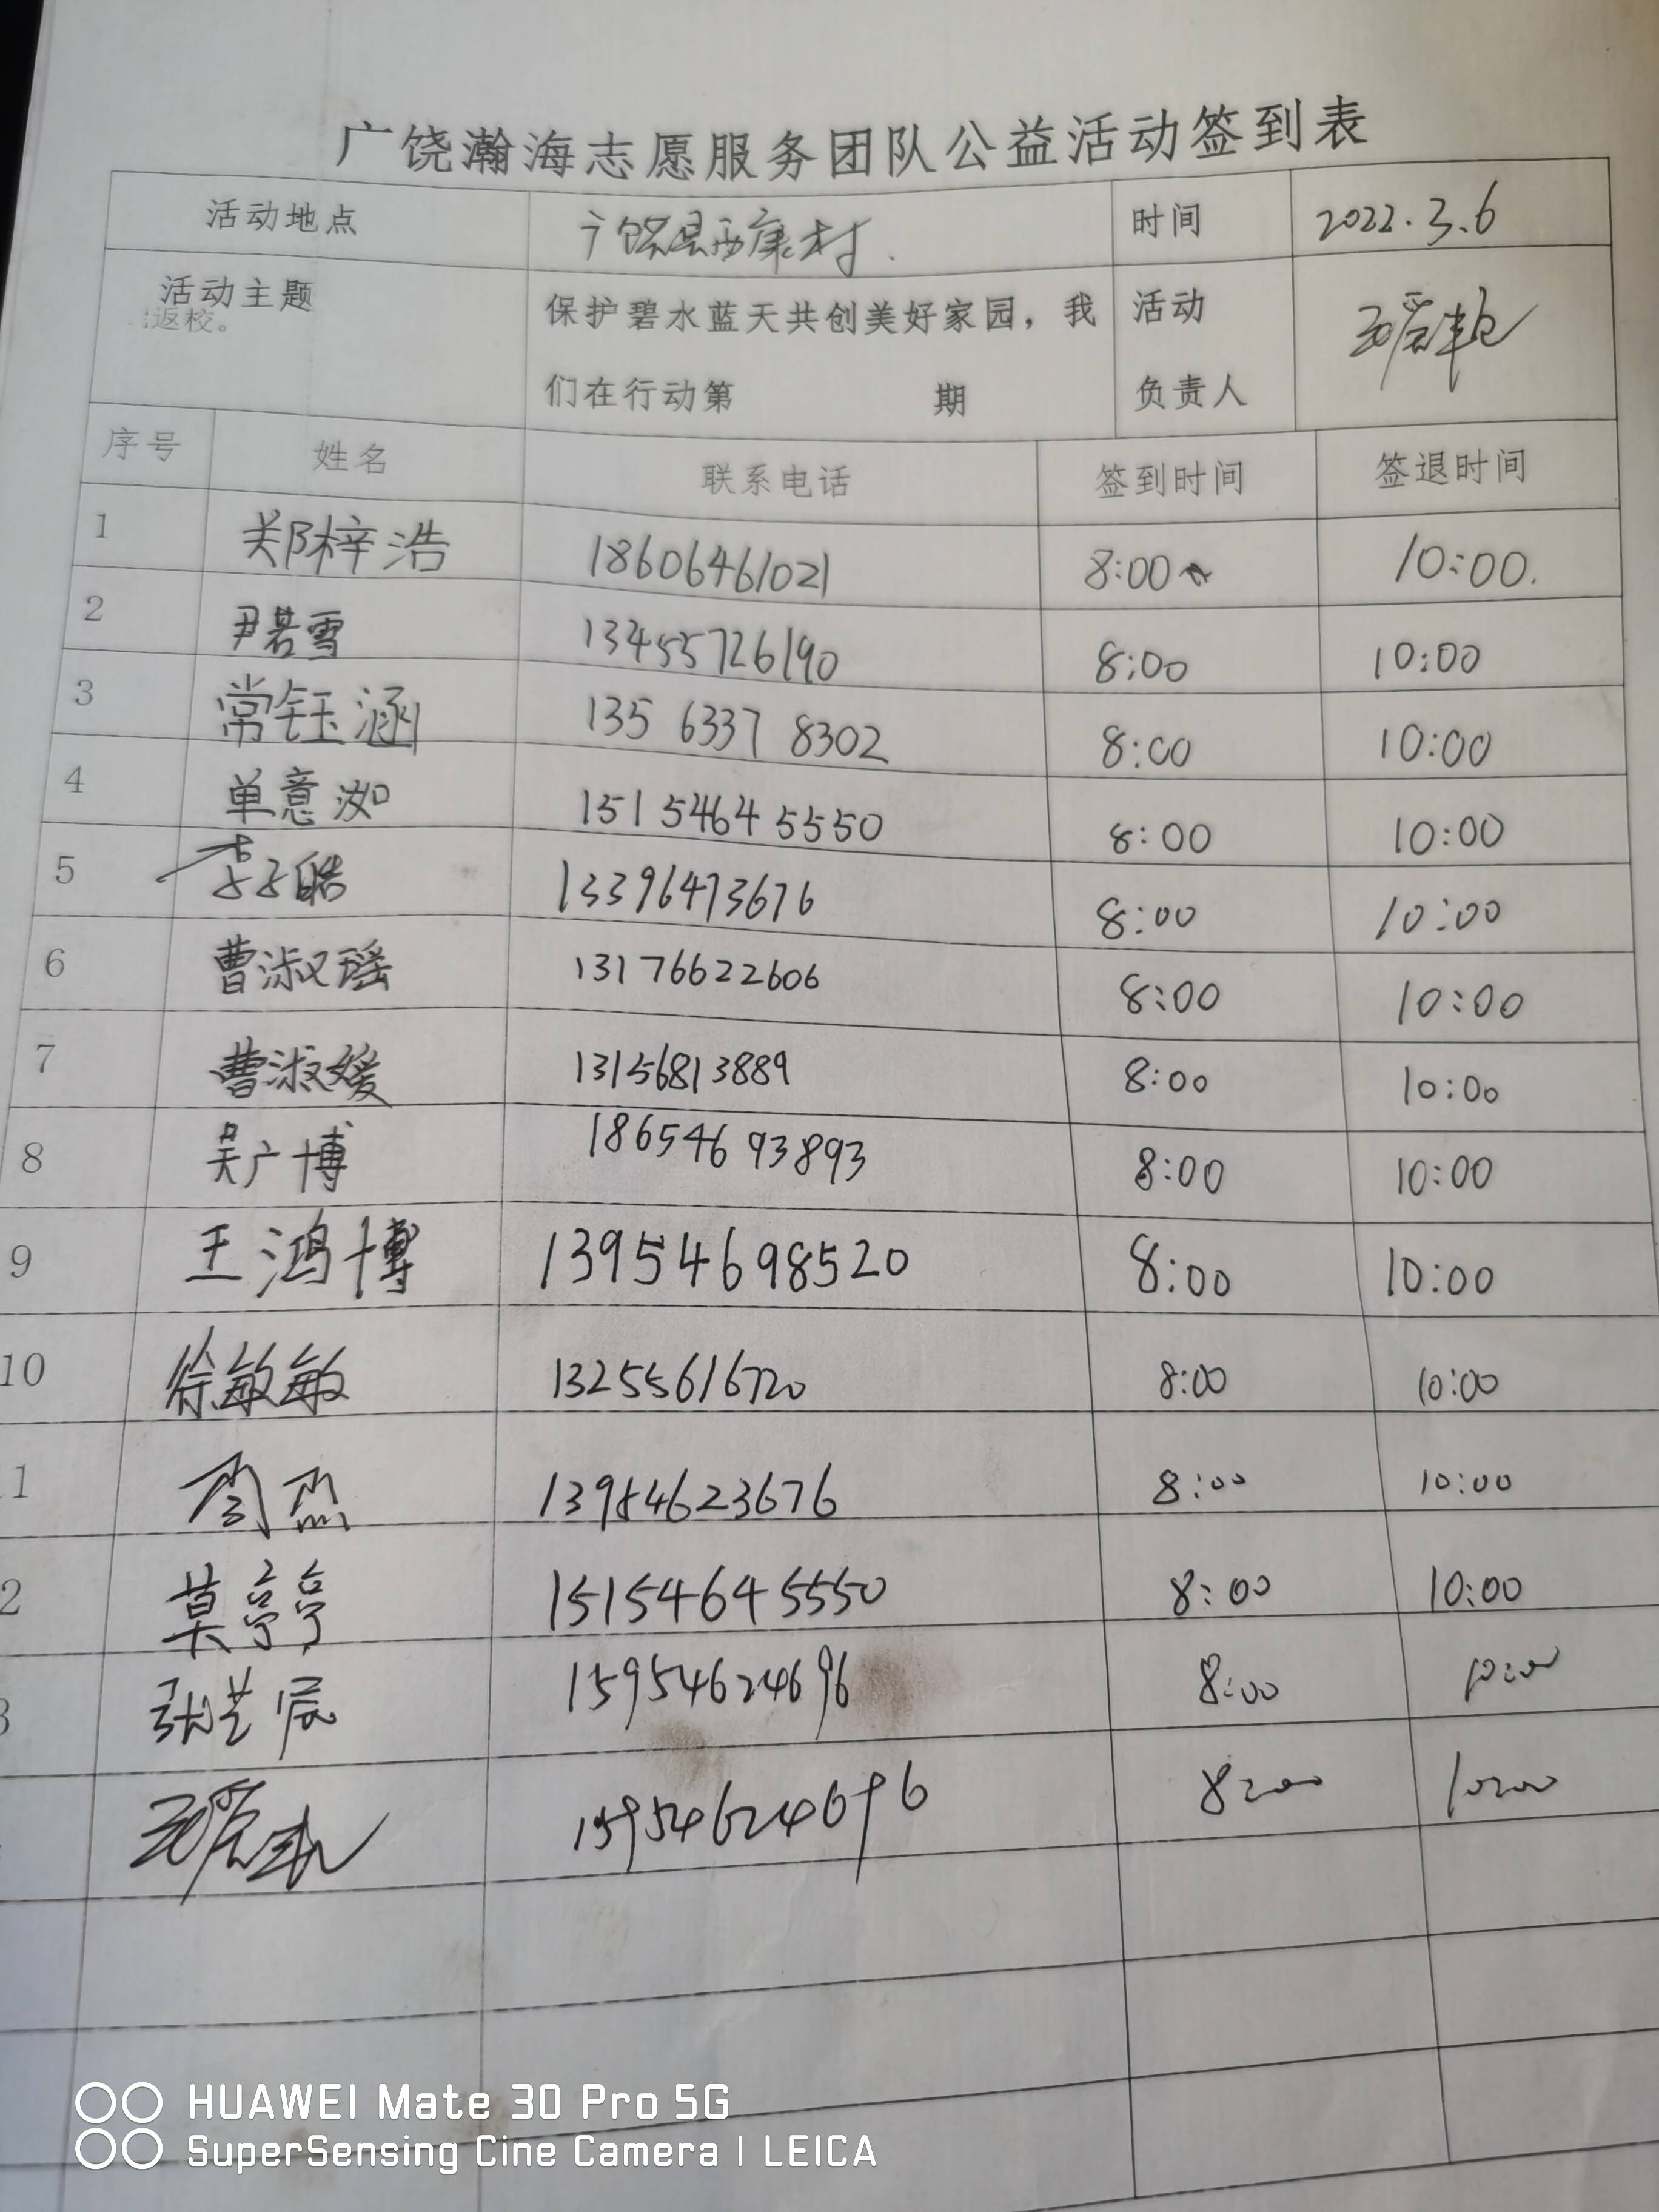 广饶瀚海志愿服务团队公益活动签到表
活动地点 广饶县西康村. 时间 2022.3.6
活动主题 保护碧水蓝天共创美好家园，我 活动
返校。
们在行动第 期 负责人
序号 姓名 联系电话 签到时间 签退时间
1 郑梓浩 18606461021 8:00 10:00.
2 尹若雪 13455726190 8:00 10:00
3 常钰涵 135 6337 8302 8:00 10:00
4 单意洳 151 5464 5550 8:00 10:00
5 李子皓 13396473676 8:00 10:00
6 曹淑瑶 13176622606 8:00 10:00
7 曹淑媛 13156813889 8:00 10:00
8 吴广博 18654693893 8:00 10:00
9 王鸿博 13954698520 8:00 10:00
10 徐敏敏 13255616720 8:00 10:00
1 李杰 13954623676 8:00 10:00
2 莫亭亭 15154645550 8:00 10:00
3 张艺宸 15954624696 8:00 10:00
15954624696 8:00 10:00
HUAWEI Mate 30 Pro 5G
SuperSensing Cine Camera | LEICA